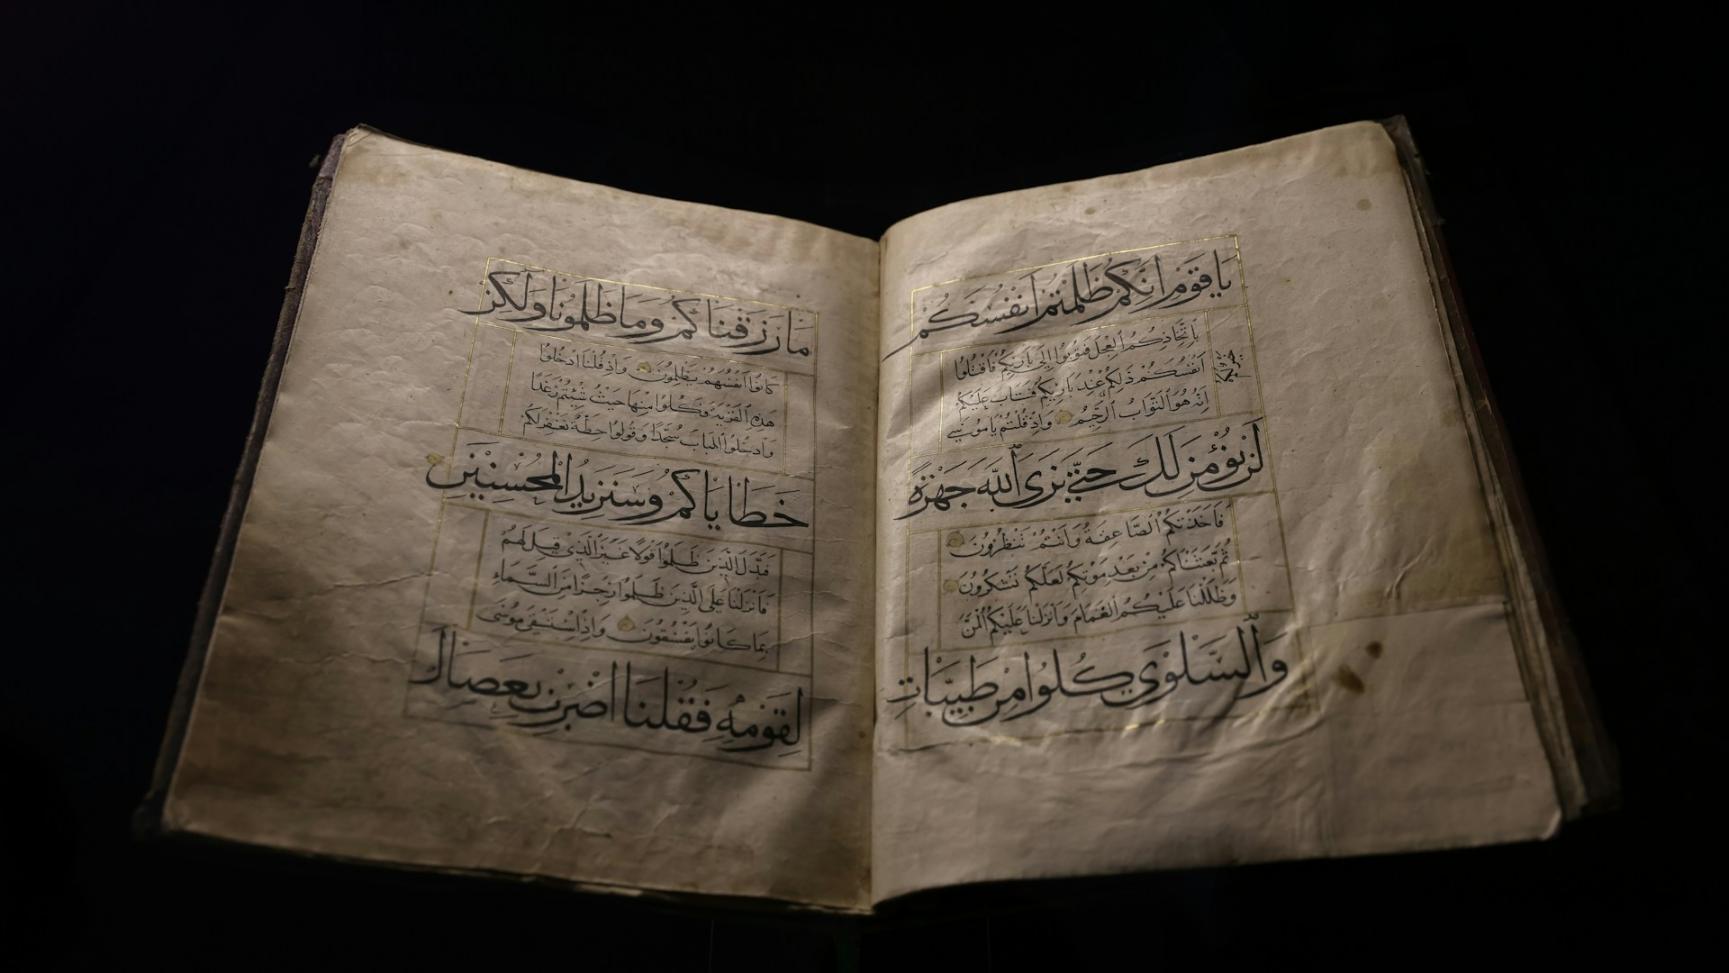 يَا قَوْمِ اِنَّكُمْ ظَلَمْتُمْ اَنْفُسَكُمْ
بِاتِّخَاذِكُمُ الْعِجْلَ فَتُوبُوا اِلَى بَارِئِكُمْ فَاقْتُلُوا
اَنْفُسَكُمْ ذَلِكُمْ خَيْرٌ لَكُمْ عِنْدَ بَارِئِكُمْ فَتَابَ عَلَيْكُمْ
اِنَّهُ هُوَ التَّوَّابُ الرَّحِيمُ وَاِذْ قُلْتُمْ يَا مُوسَى
لَنْ نُؤْمِنَ لَكَ حَتَّى نَرَى اللَّهَ جَهْرَةً
فَاَخَذَتْكُمُ الصَّاعِقَةُ وَاَنْتُمْ تَنْظُرُونَ
ثُمَّ بَعَثْنَاكُمْ مِنْ بَعْدِ مَوْتِكُمْ لَعَلَّكُمْ تَشْكُرُونَ
وَظَلَّلْنَا عَلَيْكُمُ الْغَمَامَ وَاَنْزَلْنَا عَلَيْكُمُ الْمَنَّ
وَالسَّلْوَى كُلُوا مِنْ طَيِّبَاتِ
مَا رَزَقْنَاكُمْ وَمَا ظَلَمُونَا وَلَكِنْ
كَانُوا اَنْفُسَهُمْ يَظْلِمُونَ وَاِذْ قُلْنَا ادْخُلُوا
هَذِهِ الْقَرْيَةَ فَكُلُوا مِنْهَا حَيْثُ شِئْتُمْ رَغَدًا
وَادْخُلُوا الْبَابَ سُجَّدًا وَقُولُوا حِطَّةٌ نَغْفِرْ لَكُمْ
خَطَايَاكُمْ وَسَنَزِيدُ الْمُحْسِنِينَ
فَبَدَّلَ الَّذِينَ ظَلَمُوا قَوْلًا غَيْرَ الَّذِي قِيلَ لَهُمْ
فَاَنْزَلْنَا عَلَى الَّذِينَ ظَلَمُوا رِجْزًا مِنَ السَّمَاءِ
بِمَا كَانُوا يَفْسُقُونَ وَاِذِ اسْتَسْقَى مُوسَى
لِقَوْمِهِ فَقُلْنَا اضْرِبْ بِعَصَاكَ